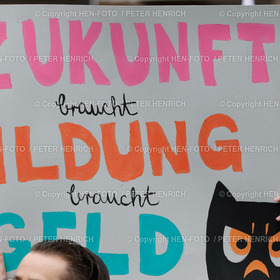 ZUKUNFT
braucht
BILDUNG
braucht
GELD
Copyright © HEN-FOTO / PETER HENRICH